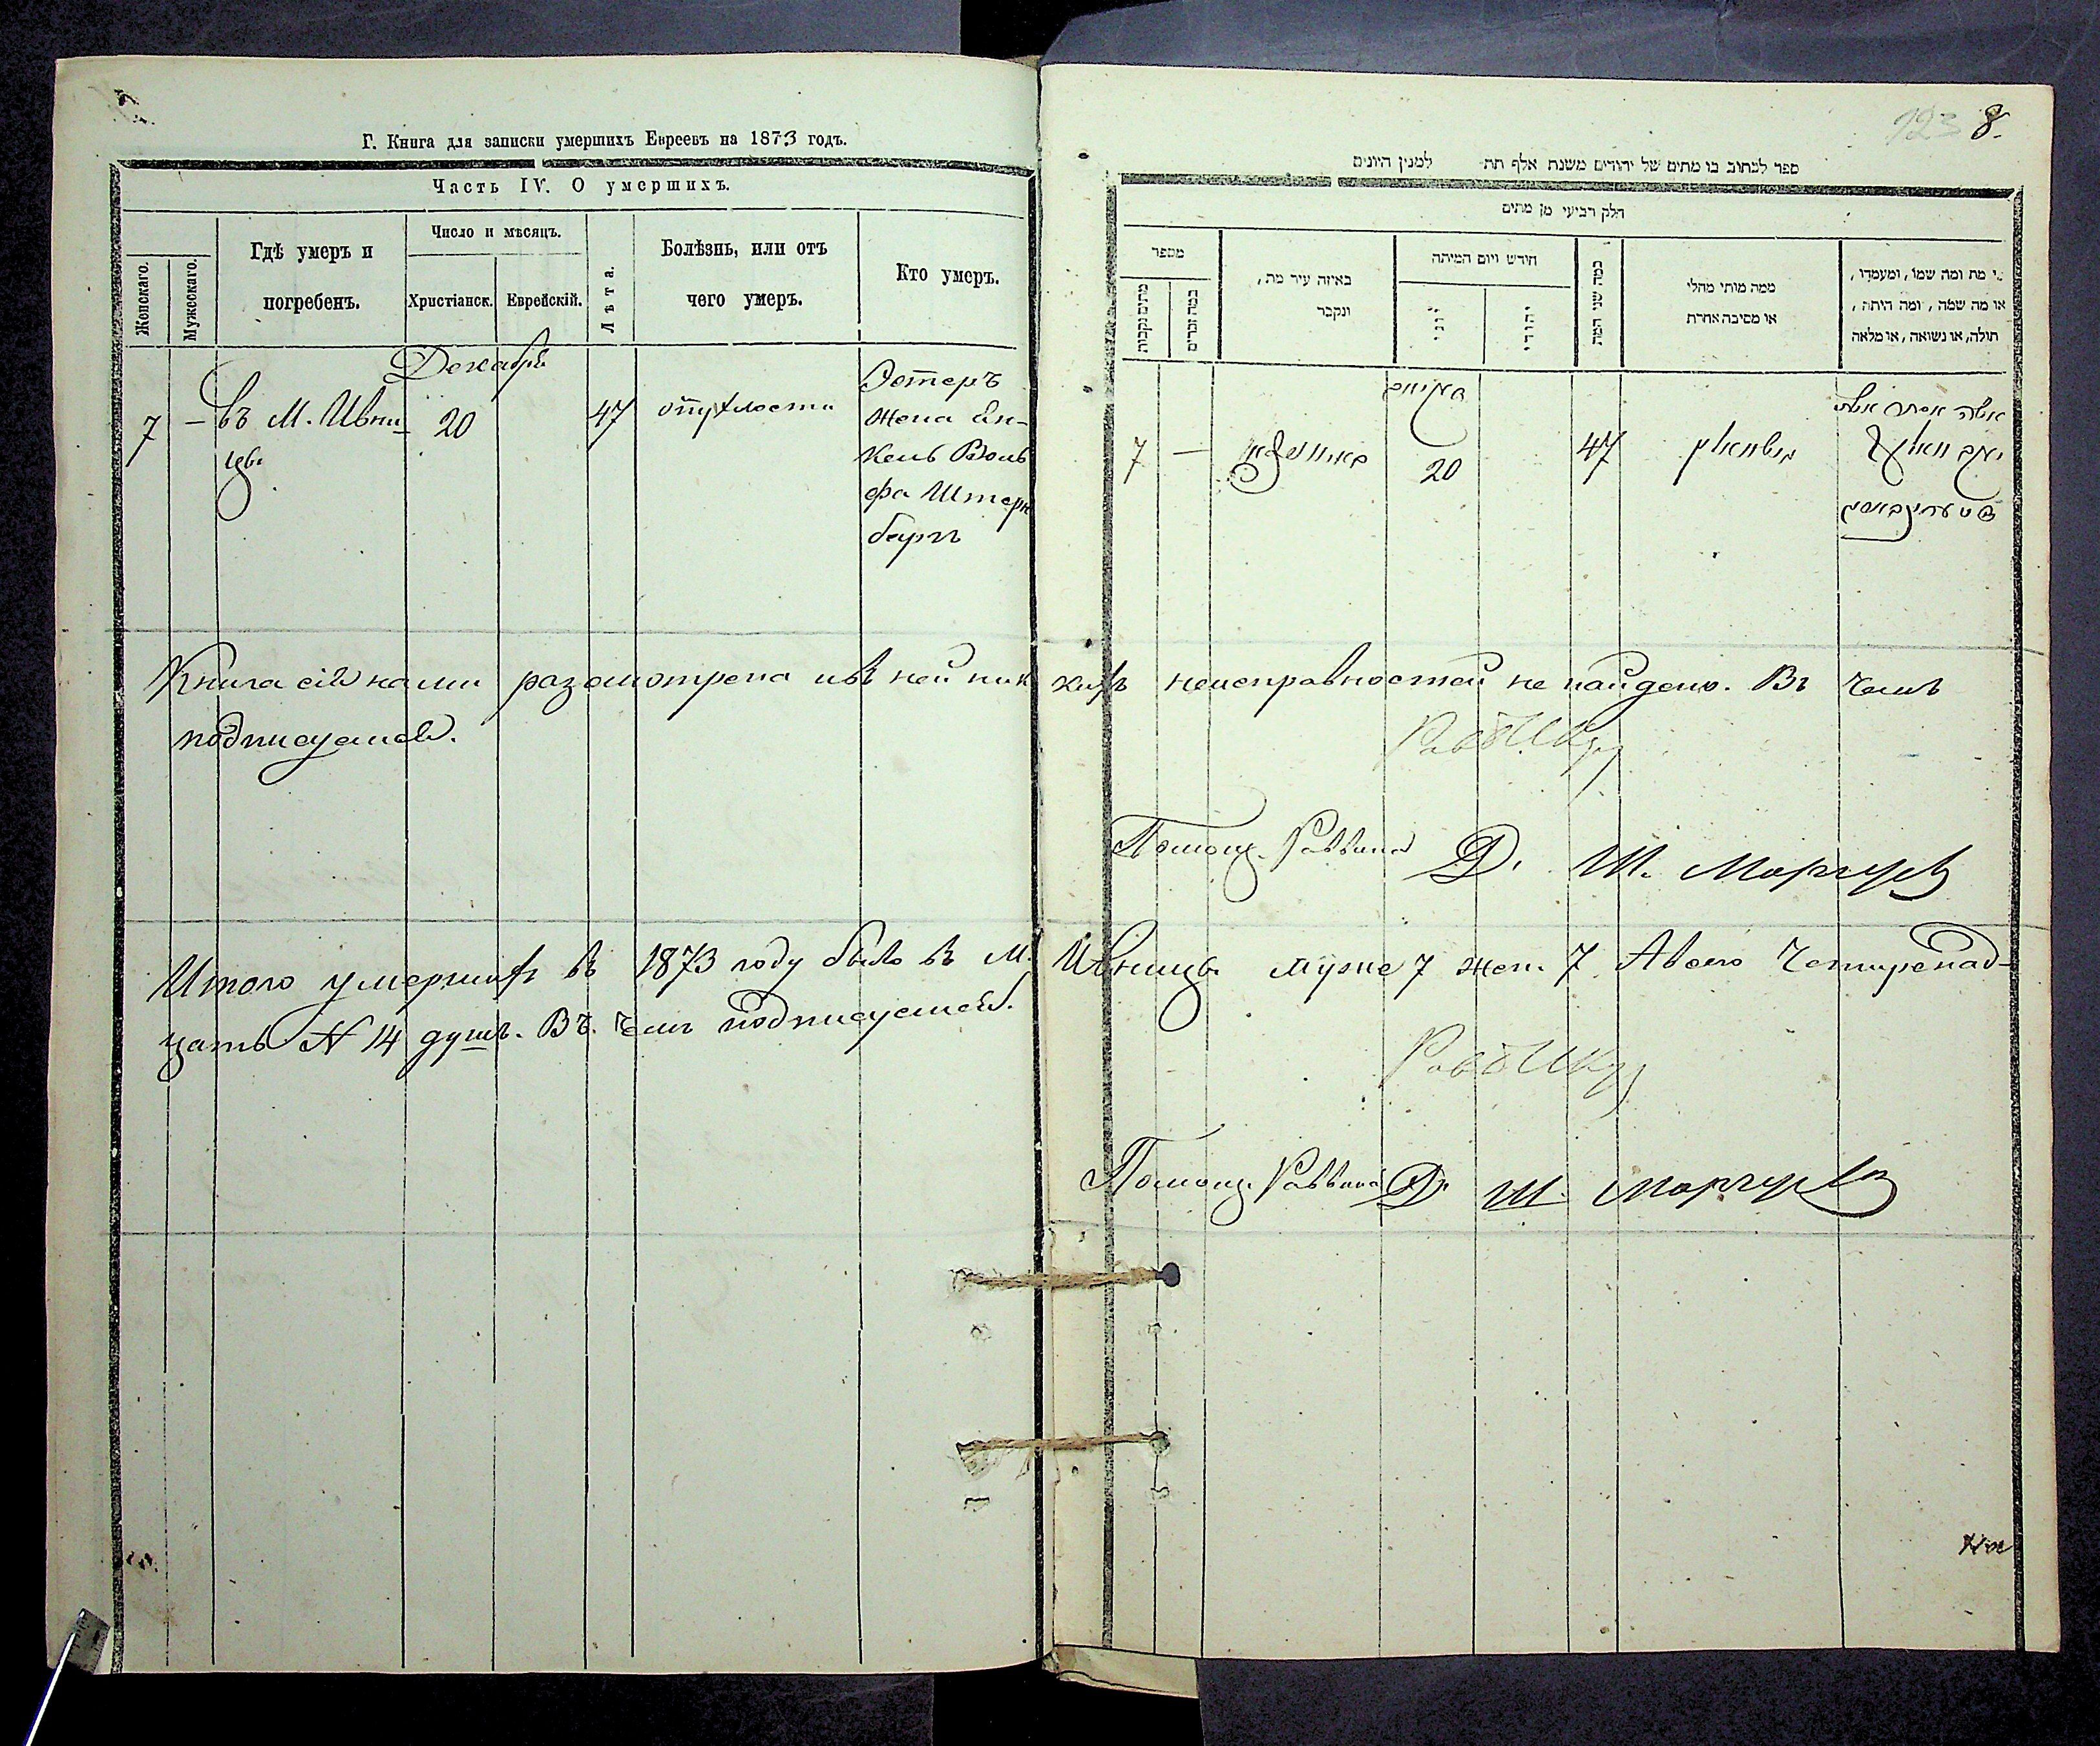 Г. Книга для записки умершихъ Евреевъ на 1873 годъ.
Часть IV. О умершихъ.
Женскаго.
Мужескаго.
Гдѣ умеръ и
погребенъ.
Число и мѣсяцъ.
Христіанск.
Еврейскій.
Лѣта.
Болѣзнь, или отъ
чего умеръ.
Кто умеръ.
Декабря
7 — въ М. Ивни-
цѣ
20
47
опухлости
Эстеръ
жена Ян-
келя Вольфа
Штерн
бергъ
Книга сія нами разсмотрена и въ ней ник
подписуемся.
Итого умершихъ въ 1873 году было въ М.
цать № 14 душъ. Въ чемъ подписуемся.
123 8.
ספר לכתוב בו מתים של יהודים משנת אלף תת למנין היונים
חלק רביעי מן מתים
מספר
מיתים נקבות
כמה זכרים
באיזה עיר מת,
ונקבר
חודש ויום המיתה
יוני
יהודי
כמה שני המת
ממה מותו מחלי
או מסיבה אחרת
מי מת ומה שמו, ומעמדו,
או מה שמה, ומה היתה,
תולה, או נשואה, או מלאה
7 —
20
47
אשה אסתר אשת
кихъ неисправностей не найдено. Въ чемъ
Помощ. Раввина Д. Ш. Маргулв
Ивницѣ мужс 7 жен. 7. А всего Четиренад-
Помощ. Раввина Д. Ш. Маргулв